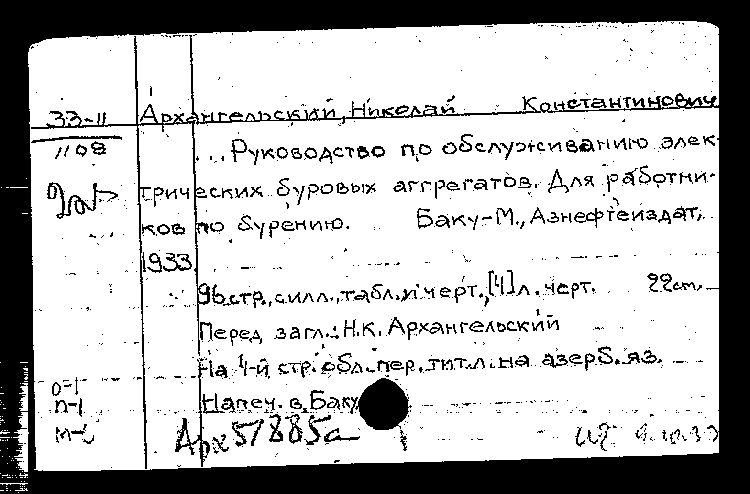 33-11 Архангельский, Николай Константинович
1108 ... Руководство по обслуживанию элек-
трических буровых аггрегатов. Для работни-
ков по бурению. Баку-М., Азнефтеиздат,
1933.
96 стр., с илл., табл. и черт., [4] л. черт. 22 cm.
Перед загл.: Н.К. Архангельский
На 4-й стр. обл. пер. тит. л. на азерб. яз.
О-1
П-1 Напеч. в Баку
М-
Арх 51885а 9.10.33